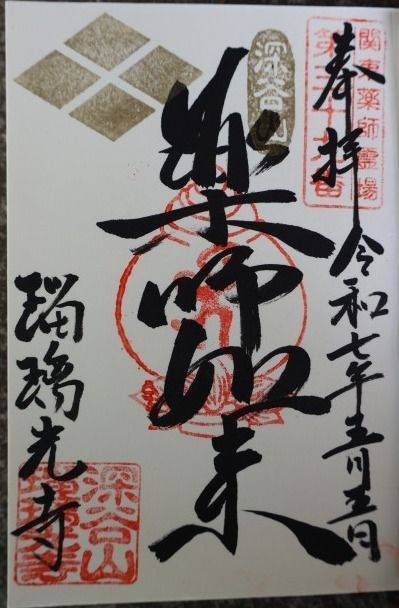 関東薬師霊場
第三十九番
奉拝
令和七年五月五日
深谷山
薬師如来
瑠璃光寺
深谷山
瑠璃光寺